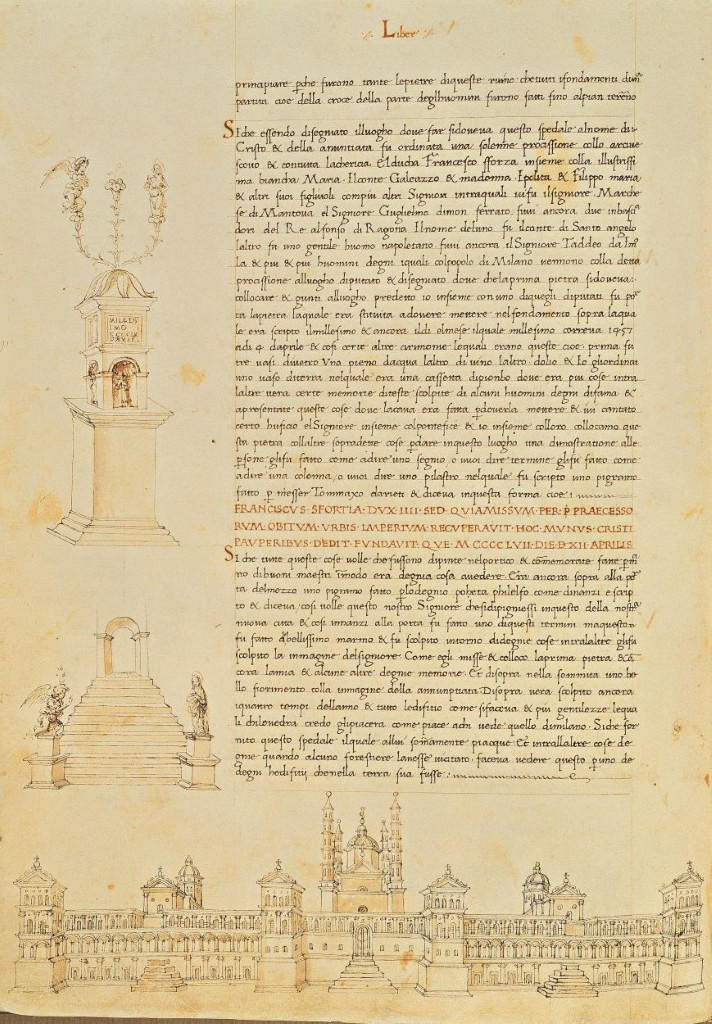 Liber
principiare perche furono tante le pietre di queste ruine che tuti i fondamenti duna
partita cioe della croce della parte deglhuomini furono fatti fino alpian tereno
Siche essendo disegnato illuogho dove far sidoveva questo spedale alnome di
Cristo & della anuntiata fu ordinata una solenne procissione collo arcive
scovo & contuta lachericia. Elducha Francesco sforza insieme colla illustrissi
ma biancha Maria. Ilconte Galeazzo & madonna. Ipolita & Filippo maria
& altri suoi figliuoli compiu altri Signori intraquali vifu ilsignore Marche
se di Mantova el Signore Guglielmo dimon ferrato. fuvi ancora due imbascia
dori del Re alfonso di Ragona Ilnome deluno fu ilconte di Santo angelo
laltro fu uno gentile huomo napoletano fuvi ancora il Signore Taddeo da Imo
la & piu & piu huomini degni iquali colpopolo di Milano vennono colla detta
procissione alluogho diputato & disegnato dove chelaprima pietra sidoveva
collocare & giunti alluogho predetto io insieme con uno diquegli diputati fu por
ta lapietra laquale era statuita adovere mettere nelfondamento sopra laqua
le era scripto ilmillesimo & ancora ildi elmese ilquale millesimo correva 1457
adi 4 daprile & cosi certe altre cirimonie lequali erano queste cioe. prima fu
tre vasi divetro Uno pieno dacqua laltro di vino laltro dolio & Io gliordinai
uno vaso diterra nelquale era una cassetta dipionbo dove era piu cose intra
laltre vera certe memorie diteste scolpite di alcuni huomini degni difama &
apresentate queste cose dove lacava era fatta perdoverla mettere & ivi cantato
certo huficio el Signore insieme colpontefice & io insieme colloro collocamo que
sta pietra collaltre sopradette cose perdare inquesto luogho una dimostratione alle
persone glifu fatto come adire uno segno o vuoi dire termine glifu fatto come
adire una colonna o vuoi dire uno pilastro nelquale fu scripto uno pigramo
fatto per messer Tommaxo darieti & diceva inquesta forma cioe
FRANCISCVS · SFORTIA · DVX · IIII · SED · QVI AMISSVM · PER · P̄ PRAECESSO
RVM · OBITVM · VRBIS · IMPERIVM · RECVPERAVIT · HOC · MVNVS · CRISTI
PAVPERIBVS · DEDIT · FVNDAVIT · QVE · M CCCC LVII · DIE · D XII · APRILIS
Siche tutte queste cose volle chefussono dipinte nelportico & commemorate fatte perma
no dibuoni maestri imodo era degnia cosa avedere. Era ancora sopra alla por
ta delmezzo uno pigramo fatto perlodegnio poheta philelfo come dinanzi e scrip
to & diceva cosi volle questo nostro Signore chesidipignessi inquesto della nostra
nuova citta & cosi innanzi alla porta fu fatto uno diquesti termini maquesto
fu fatto dibellissimo marmo & fu scolpito intorno didegne cose intralaltre glifu
scolpito la immagine delsignore Come egli misse & colloco laprima pietra & an
cora lamia & alcune altre degne memorie Et disopra nella sommita uno be
llo fiorimento colla immagine della annuntiata. Disopra vera scolpito ancora
iquatro tempi dellanno & tuto ledifitio come sifaceva & piu gentilezze lequa
li chilovedra credo glipiacera come piace achi vede quello dimilano. Siche for
nito questo spedale ilquale allui sommamente piacque Et intrallaltre cose de
gne quando alcuno forestiere lavesse vicitato faceva vedere questo peruno de
degni hedifitii chonella terra sua fusse
MILLES
IMO